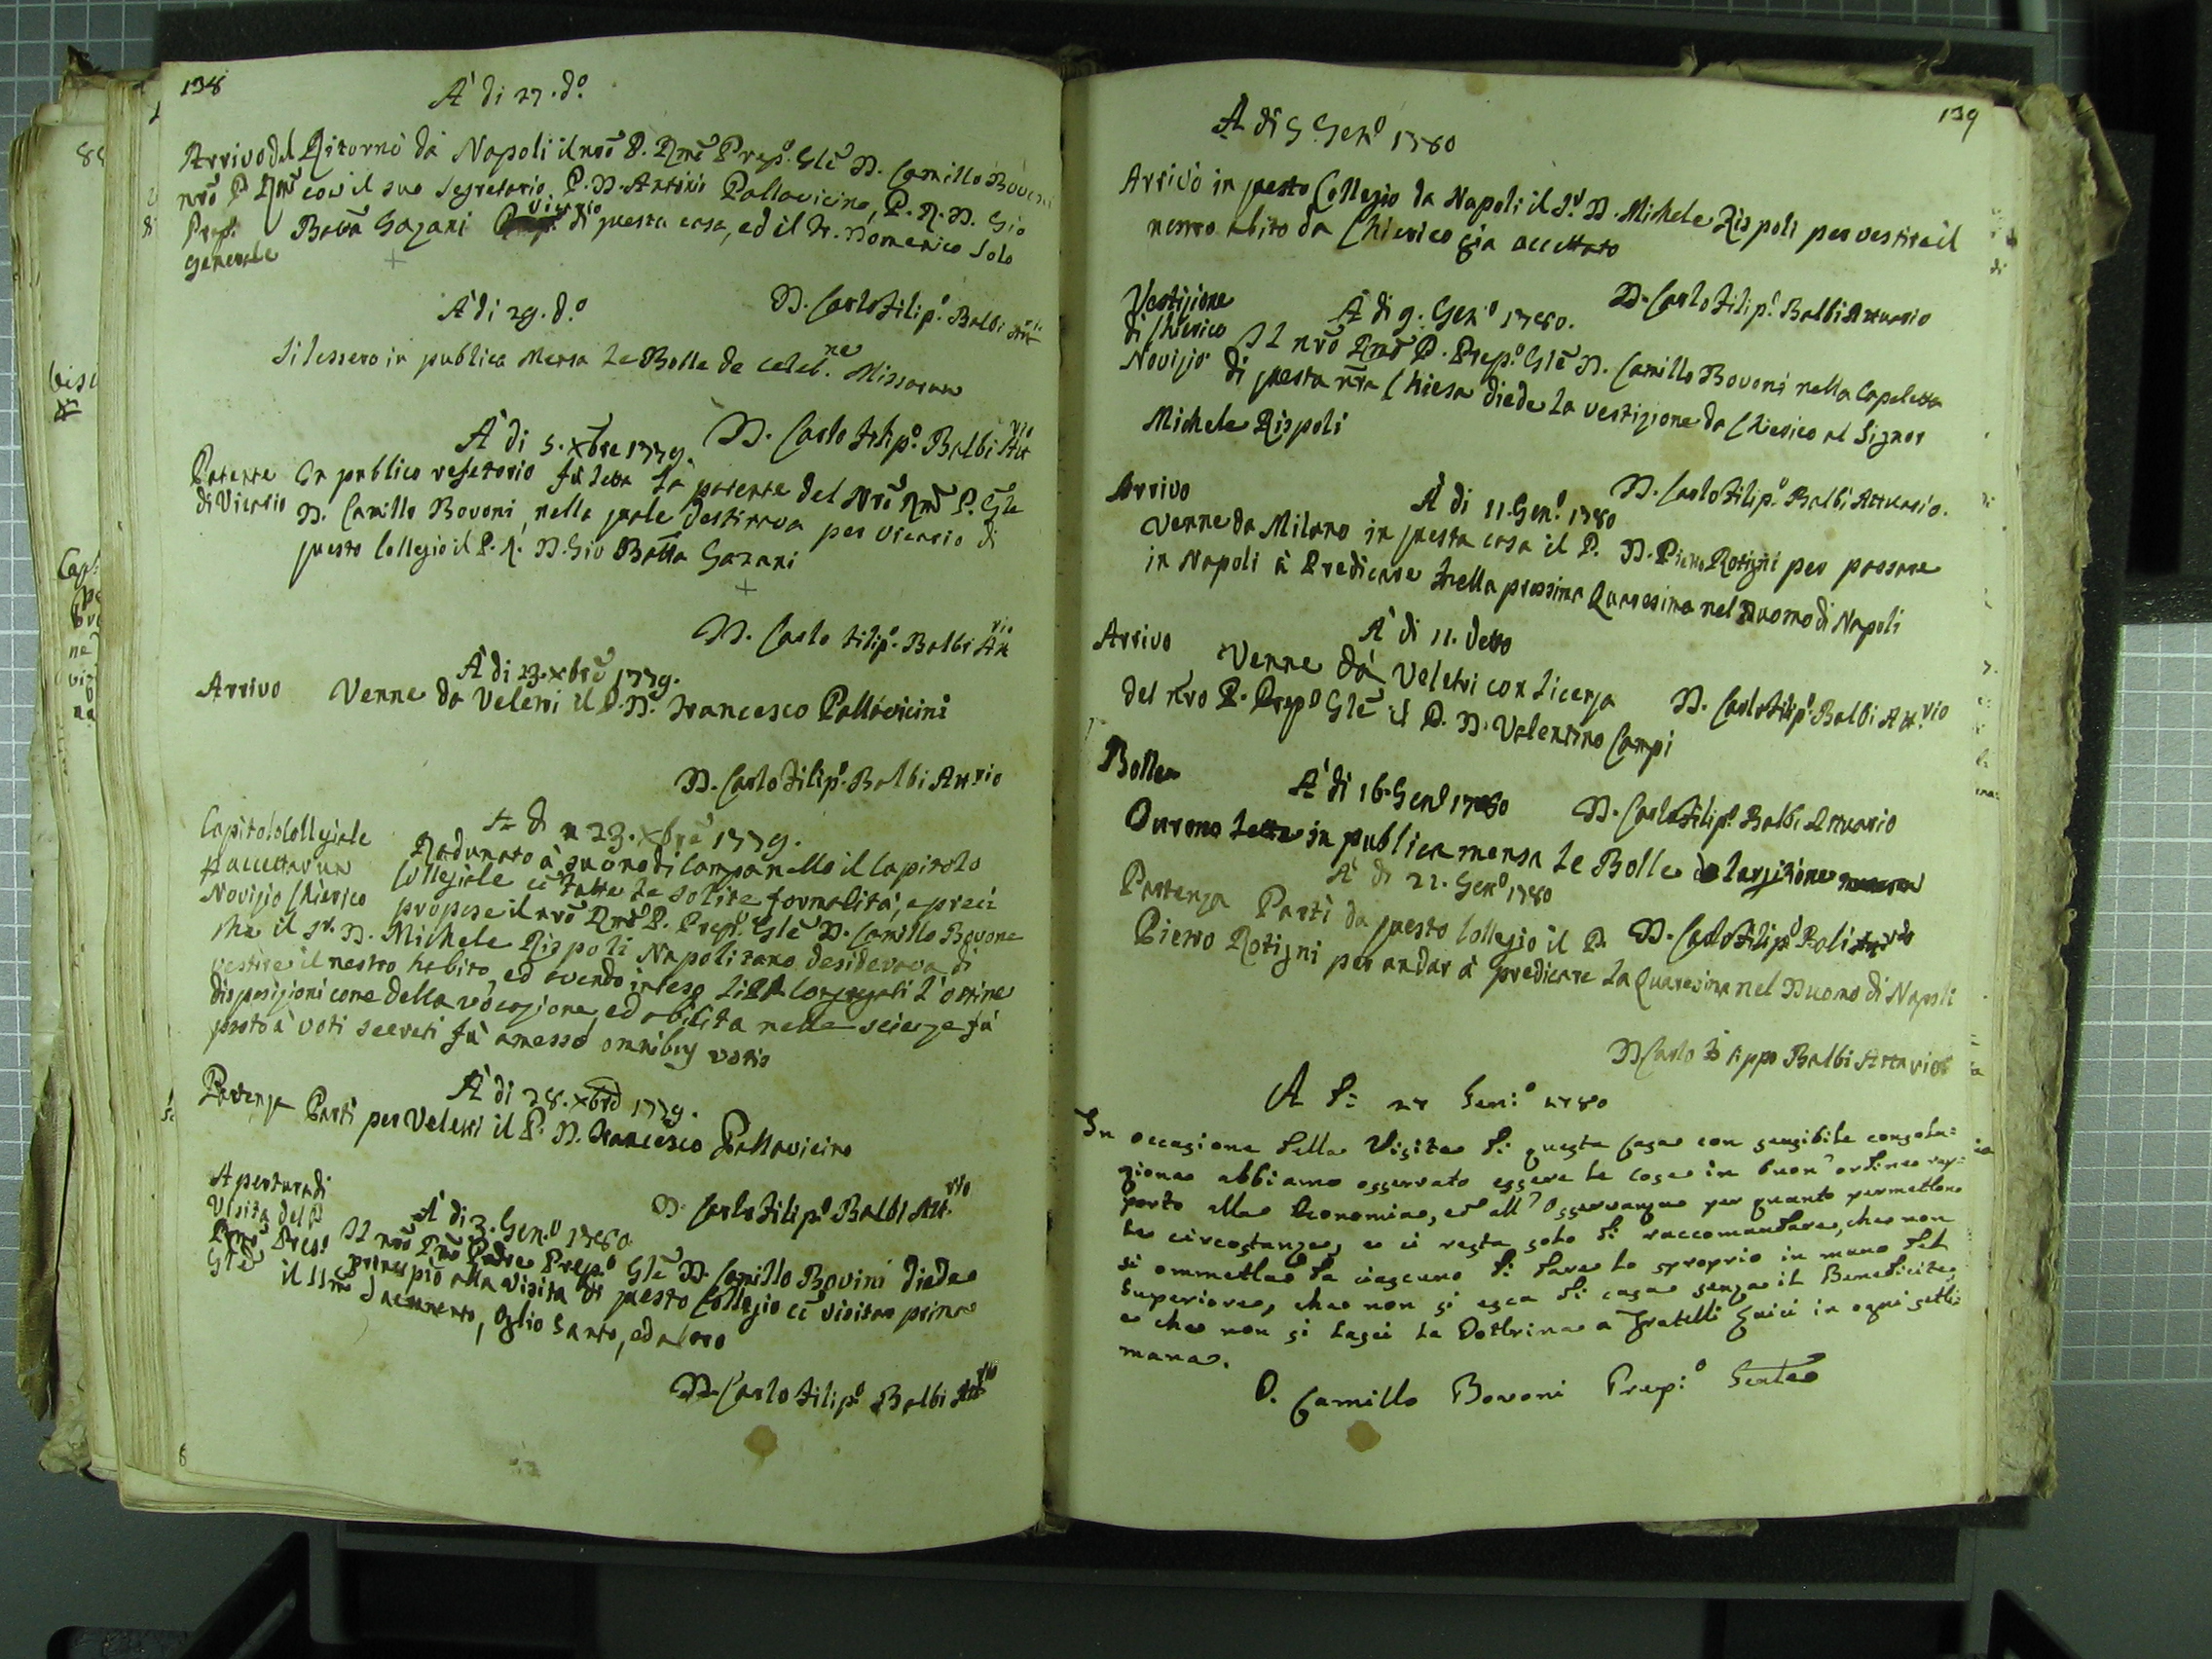 138
A' di 27. d.º
Arrivo del Ritornò da Napoli il nrõ P. Rmõ Prep.º Glẽ D. Camillo Bovoni
nrõ P. Rmõ con il suo Segretario P. D. Antonio Pallavicino, P. R. D. Gio
Prep.º Batta Gazani Vicario di questa casa, ed il Fr. Domenico Solo
Generale
D. Carlo Filip.º Balbi
A' di 29. d.º
Si lessero in publica Mensa Le Bolle de celeb.ne Missarum
D. Carlo Filip.º Balbi Att.rio
A' di 5. Xbre 1779.
Patente In publico refetorio fù letta La patente del Nrõ Rmõ P. Glẽ
di Vicario D. Camillo Bovoni, nella quale destinava per vicario di
questo Collegio il P. R. D. Gio Batta Gazani
D. Carlo Filip.º Balbi Att.rio
A' di 23. Xbrẽ 1779.
Arrivo Venne da Veletri il P. D. Francesco Pallavicini
D. Carlo Filip.º Balbi Att.rio
A di 23. Xbrẽ 1779.
Capitolo Collegiale Radunato à suono di Campanello il Capitolo
p accettar un Collegiale e fatte le solite formalità, e preci
Novizio Chierico propose il nrõ Rmõ P. Prep.º Glẽ D. Camillo Bovone
che il Sr. D. Michele Rispoli Napolitano desiderava di
vestire il nostro habito, ed avendo inteso li Congregati l'ottime
disposizioni come della vocazione, ed abilita nelle scienze fù
posto à voti secreti fù amesso omnibus votis
A' di 28. Xbrẽ 1779.
Partenza Partì per Veletri il P. D. Francesco Pallavicino
D. Carlo Filip.º Balbi Att.rio
Apertura di
Visita del P.
A' di 3. Gen.º 1780
Rmõ Prep.º Il nrõ Rmõ Padre Prep.º Glẽ D. Camillo Bovini diede
Glẽ principio alla visita di questo Collegio e visitò prima
il SSmõ Sacramento, Oglio Santo, ed altro
D. Carlo Filip.º Balbi Att.rio
139
A di 5 Gen.º 1780
Arrivò in questo Collegio da Napoli il S.r D. Michele Rispoli per vestire il
nostro abito da Chierico gia accettato
D. Carlo Filip.º Balbi Attuario
Vestizione
di Chierico
Novizio
A di 9. Gen.º 1780.
Il nrõ Rmõ P. Prep.º Glẽ D. Camillo Bovoni nella Capeletta
di questa nrã Chiesa diede la vestizione da Chierico al Signor
Michele Rispoli
D. Carlo Filip.º Balbi Attuario.
Arrivo
A' di 11. Gen.º 1780
Venne da Milano in questa casa il P. D. Pietro Rotigni per passare
in Napoli à Predicare nella prossima Quaresima nel Duomo di Napoli
Arrivo
A' di 11. detto
Venne da Veletri con Licenza
del nrõ P. Prep.º Glẽ il P. D. Valentino Campi
D. Carlo Filip.º Balbi Att.rio
Bolle
A' di 16. Gen.º 1780
Ourono Lette in publica mensa Le Bolle de largitione
D. Carlo Filip.º Balbi Attuario
A' di 21. Gen.º 1780
Partenza Partì da questo Collegio il P.
Pietro Rotigni per andar à predicare La Quaresima nel Duomo di Napoli
D. Carlo Filip.º Balbi
D Carlo Filippo Balbi Attuario
A dì 27 Gen.º 1780
In occasione della Visita di questa Casa con sensibile consola=
zione abbiamo osservato essere le cose in buon'ordine rap=
porto alla Economia, ed all'Osservanza per quanto permettono
le circostanze, e ci resta solo di raccomandare, che non
si ommetta da ciascuno di dare lo sproprio in mano del
Superiore, che non si esca di casa senza il Benedicite,
e che non si lasci la Dottrina a' Fratelli laici in ogni setti=
mana.
D. Camillo Bovoni Prep.º Gentle